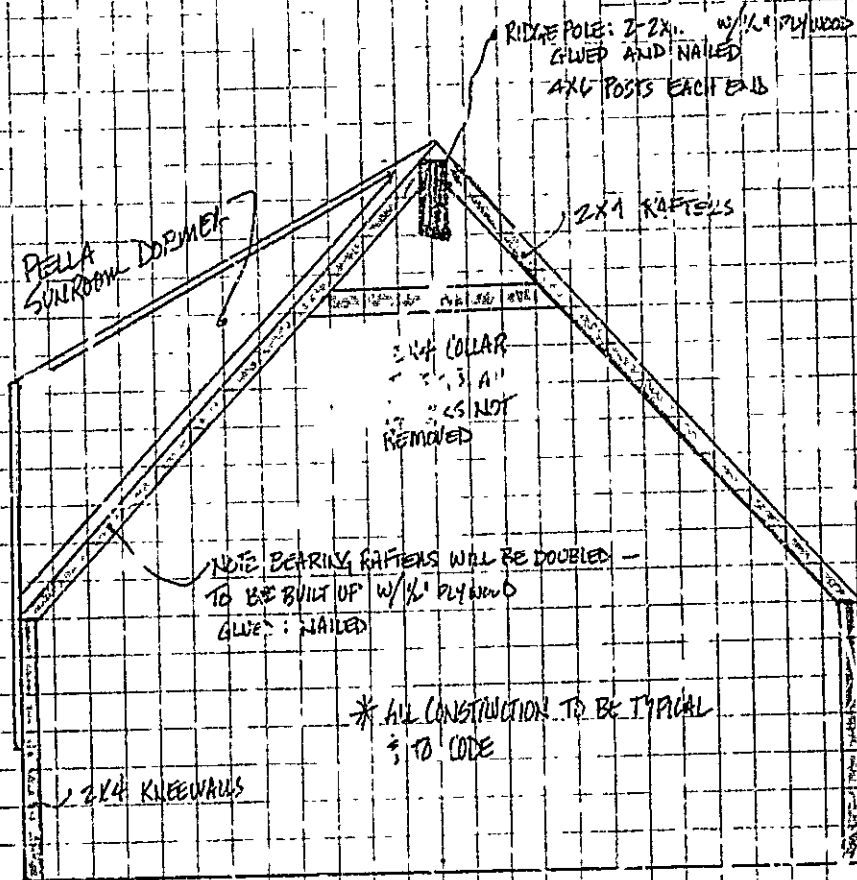 RIDGE POLE: 2-2X W/ 1/2" PLYWOOD
GLUED AND NAILED
4X6 POSTS EACH END
PELLA
SUNROOM DORMER
RAFTERS
2X4 COLLAR
NOT
REMOVED
NOTE BEARING RAFTERS WILL BE DOUBLED —
TO BE BUILT UP W/ 1/2" PLYWOOD
GLUED & NAILED
* ALL CONSTRUCTION TO BE TYPICAL
& TO CODE
2X4 KNEEWALLS